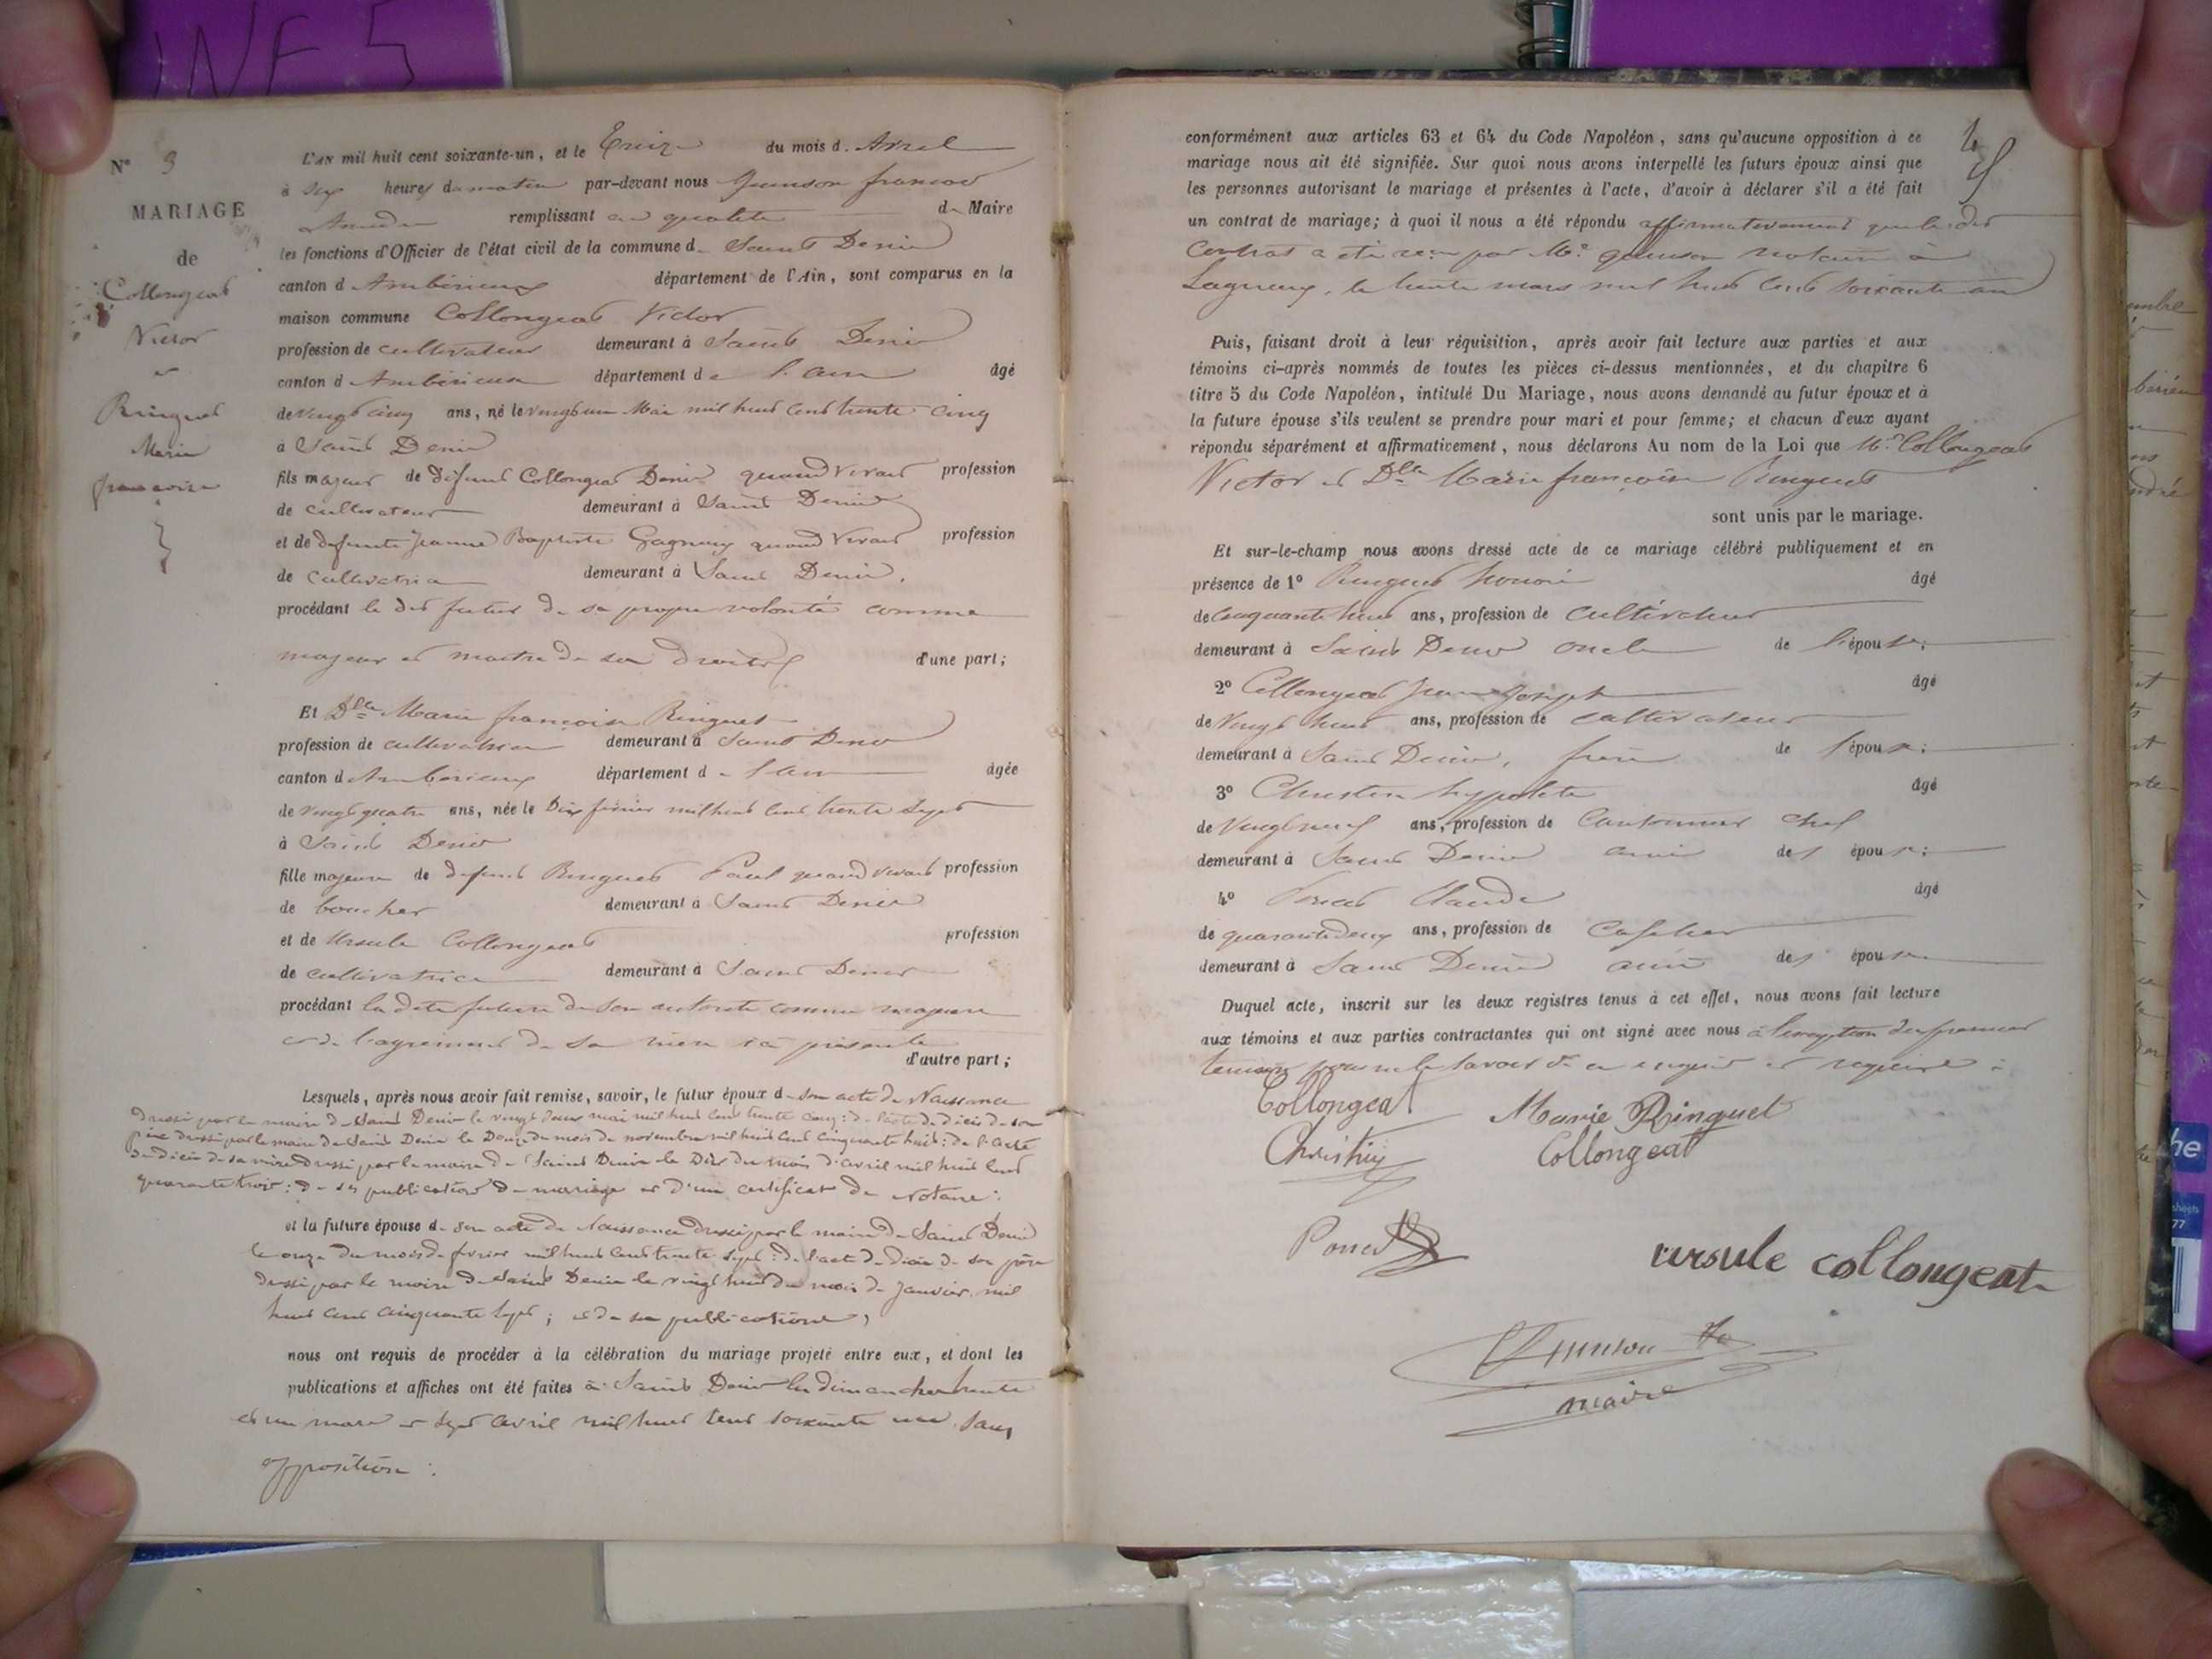 INF 5
N° 3
MARIAGE
de
Collongeat
Victor
et
Ringuet
Marie
françoise
L'AN mil huit cent soixante-un, et le Treize du mois d. Avril
à six heures du matin par-devant nous Quinson francois
Amédée remplissant en qualité de Maire
les fonctions d'Officier de l'état civil de la commune de Saint Denis
canton d'Ambérieux département de l'Ain, sont comparus en la
maison commune Collongeat Victor
profession de cultivateur demeurant à Saint Denis
canton d'Ambérieux département de l'ain âgé
de vingt cinq ans, né le vingt un Mai mil huit cent trente cinq
à Saint Denis
fils majeur de défunt Collongeat Denis quand vivait profession
de cultivateur demeurant à Saint Denis
et de défunte Jeanne Baptiste Gagneux quand Vivait profession
de cultivatrice demeurant à Saint Denis,
procédant le dit futur de sa propre volonté comme
majeur et maitre de ses droits d'une part;
Et Dlle Marie françoise Ringuet
profession de cultivatrice demeurant à Saint Denis
canton d'Ambérieux département de l'ain âgée
de vingt quatre ans, née le Dix février mil huit cent trente sept
à Saint Denis
fille majeure de défunt Ringuet Paul quand vivait profession
de boucher demeurant à Saint Denis
et de Ursule Collongeat profession
de cultivatrice demeurant à Saint Denis
procédant la dite future de son autorité comme majeure
et de l'agrément de sa mère ici présente d'autre part;
Lesquels, après nous avoir fait remise, savoir, le futur époux de son acte de Naissance
dressé par le maire de Saint Denis le vingt deux mai mil huit cent trente cinq: de l'acte de décès de son
père dressé par le maire de Saint Denis le Douze du mois de novembre mil huit cent cinquante huit: de l'acte
de décès de sa mère dressé par le maire de Saint Denis le Dix du mois d'avril mil huit cent
quarante trois: de ses publications de mariage et d'un certificat de Notaire:
et la future épouse de son acte de Naissance dressé par le maire de Saint Denis
le onze du mois de février mil huit cent trente sept: de l'acte de décès de son père
dressé par le maire de Saint Denis le vingt huit du mois de Janvier mil
huit cent cinquante sept; et de ses publications,
nous ont requis de procéder à la célébration du mariage projeté entre eux, et dont les
publications et affiches ont été faites à Saint Denis les dimanches trente
et un mars et sept avril mil huit cent soixante un sans
opposition:
conformément aux articles 63 et 64 du Code Napoléon, sans qu'aucune opposition à ce
mariage nous ait été signifiée. Sur quoi nous avons interpellé les futurs époux ainsi que
les personnes autorisant le mariage et présentes à l'acte, d'avoir à déclarer s'il a été fait
un contrat de mariage; à quoi il nous a été répondu affirmativement que le dit
contrat a été reçu par Me quinson notaire à
Lagnieux, le trente mars mil huit cent soixante un
Puis, faisant droit à leur réquisition, après avoir fait lecture aux parties et aux
témoins ci-après nommés de toutes les pièces ci-dessus mentionnées, et du chapitre 6
titre 5 du Code Napoléon, intitulé Du Mariage, nous avons demandé au futur époux et à
la future épouse s'ils veulent se prendre pour mari et pour femme; et chacun d'eux ayant
répondu séparément et affirmativement, nous déclarons Au nom de la Loi que Mr Collongeat
Victor et Dlle Marie françoise Ringuet
sont unis par le mariage.
Et sur-le-champ nous avons dressé acte de ce mariage célébré publiquement et en
présence de 1° Ringuet honoré âgé
de cinquante huit ans, profession de cultivateur
demeurant à Saint Denis oncle de l'épouse;
2° Collongeat Jean Joseph âgé
de vingt huit ans, profession de cultivateur
demeurant à Saint Denis, frère de l'époux;
3° Christin hyppolite âgé
de vingt neuf ans, profession de Cantonnier chef
demeurant à Saint Denis ami des époux;
4° Poncet Claude âgé
de quarante deux ans, profession de Cafetier
demeurant à Saint Denis ami des époux.
Duquel acte, inscrit sur les deux registres tenus à cet effet, nous avons fait lecture
aux témoins et aux parties contractantes qui ont signé avec nous à l'exception du premier
témoin pour ne le savoir de ce enquis et requis:
Collongeat Marie Ringuet
Christin Collongeat
Poncet
ursule collongeat
Quinson
maire
he
sheets
77